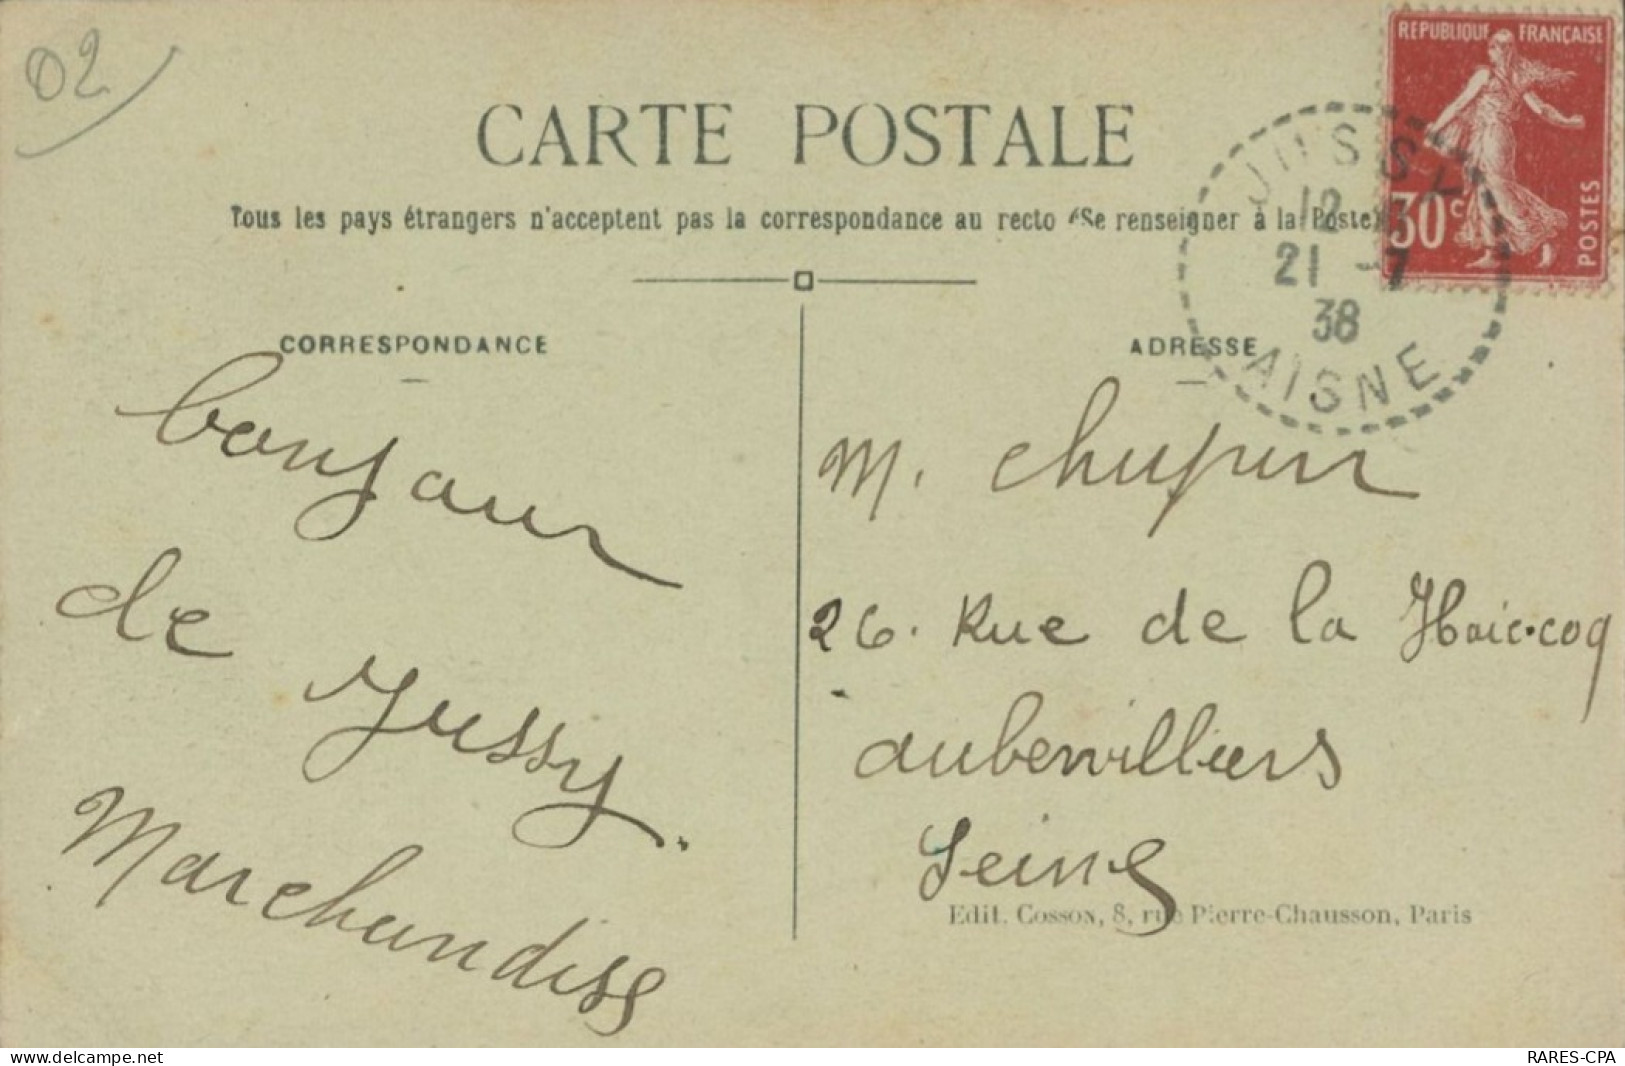 02
REPUBLIQUE FRANÇAISE
30c
POSTES
JUSSY
12
21 -7
38
AISNE
CARTE POSTALE
Tous les pays étrangers n'acceptent pas la correspondance au recto (Se renseigner à la Poste)
CORRESPONDANCE
ADRESSE
bonjour
de Jussy.
Marchandise
M. Chupin
26. Rue de la Haie-coq
aubervilliers
Seine
Edit. Cosson, 8, rue Pierre-Chausson, Paris
www.delcampe.net
RARES-CPA